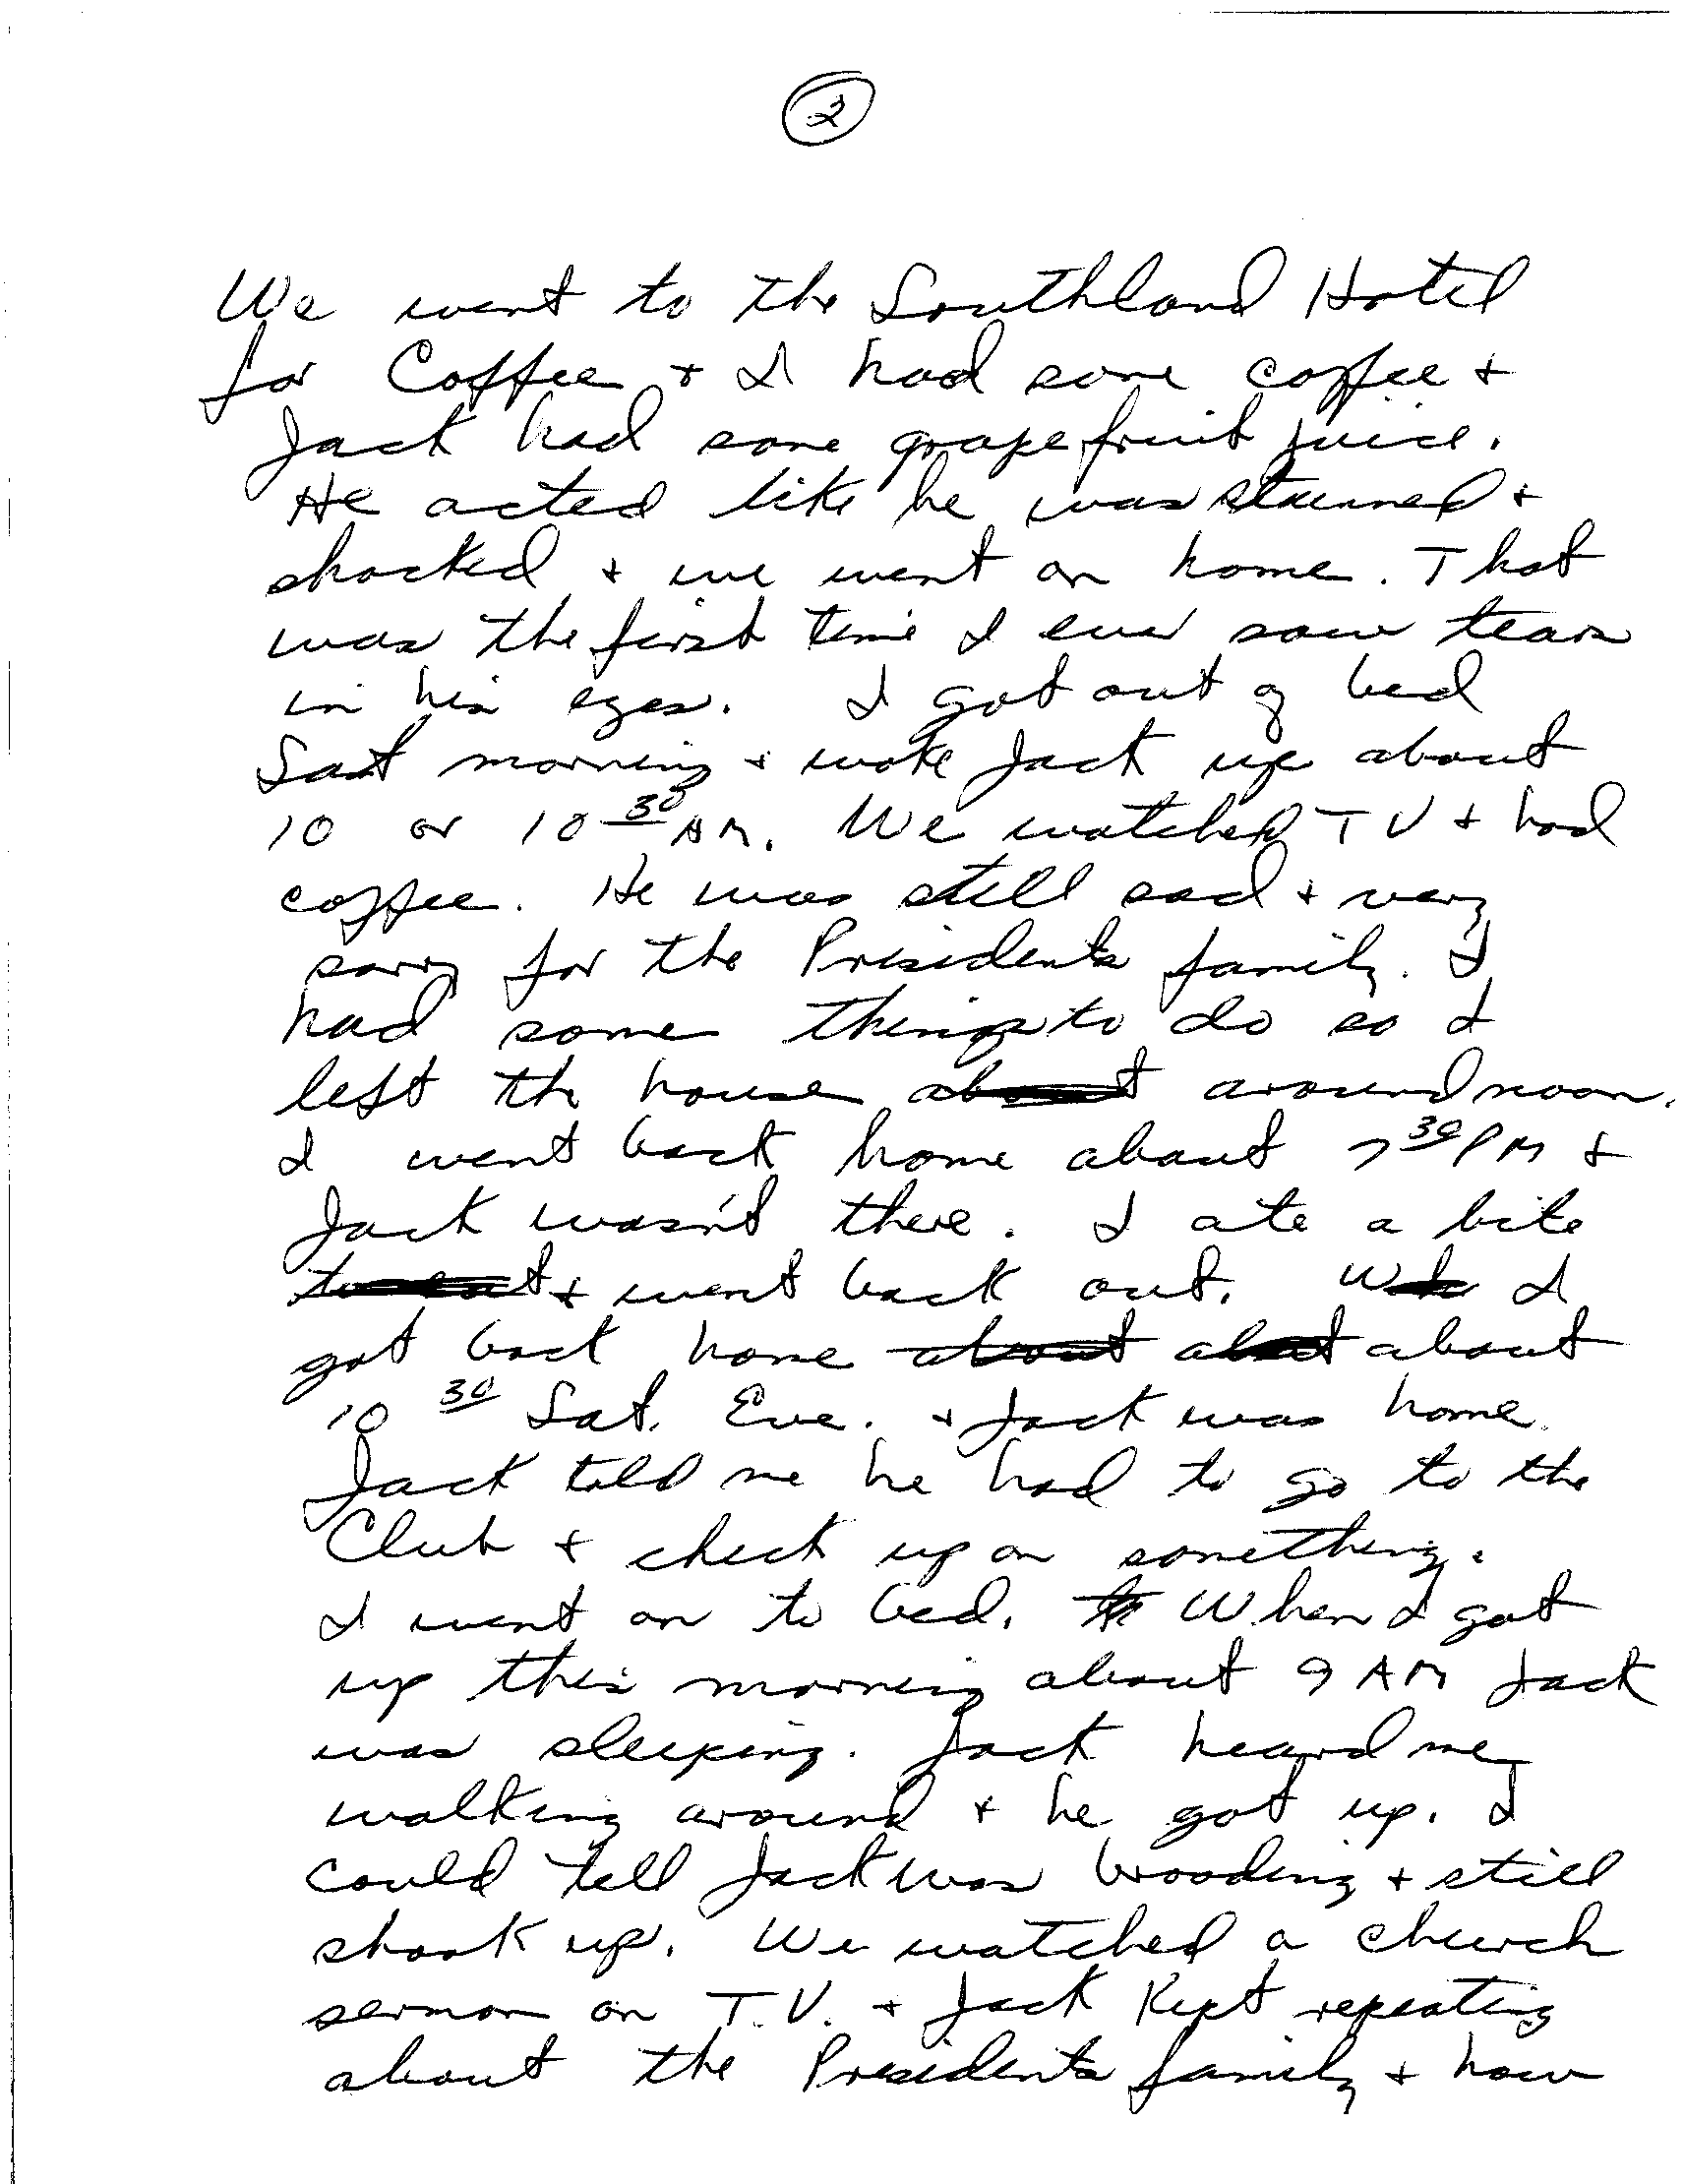 2
We went to the Southland Hotel
for Coffee + I had some coffee +
Jack had some grapefruit juice.
He acted like he was stunned +
shocked + we went on home. That
was the first time I ever saw tears
in his eyes. I got out of bed
Sat morning + woke Jack up about
10 or 10 30 AM. We watched TV + had
coffee. He was still sad + very
sorry for the Presidents family. I
had some things to do so I
left the house about around noon.
I went back home about 7 30 PM +
Jack wasn't there. I ate a bite
to eat + went back out. I
got back home about about about
10 30 Sat. Eve. + Jack was home.
Jack told me he had to go to the
Club + check up on something.
I went on to bed. When I got
up this morning about 9 AM Jack
was sleeping. Jack heard me
walking around + he got up. I
could tell Jack was brooding + still
shook up. We watched a church
sermon on T.V. + Jack kept repeating
about the Presidents family + how